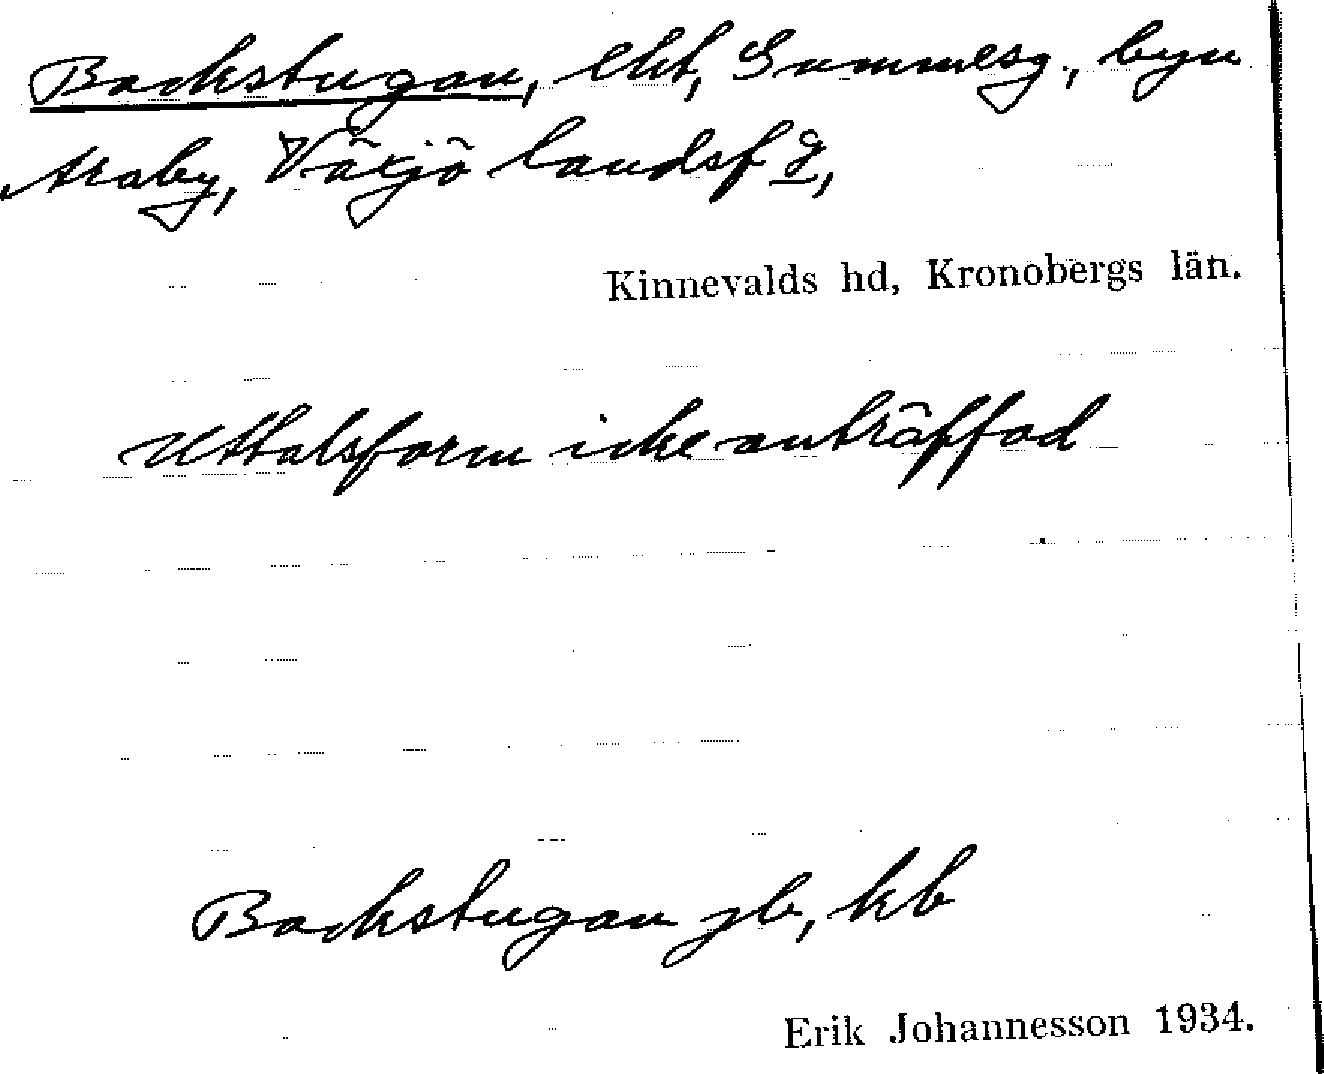 Backstugan, lht, Gummesg., byn
Araby, Växjö landsf g,
Kinnevalds hd, Kronobergs län.
Uttalsform icke anträffad
Backstugan jb, kb
Erik Johannesson 1934.